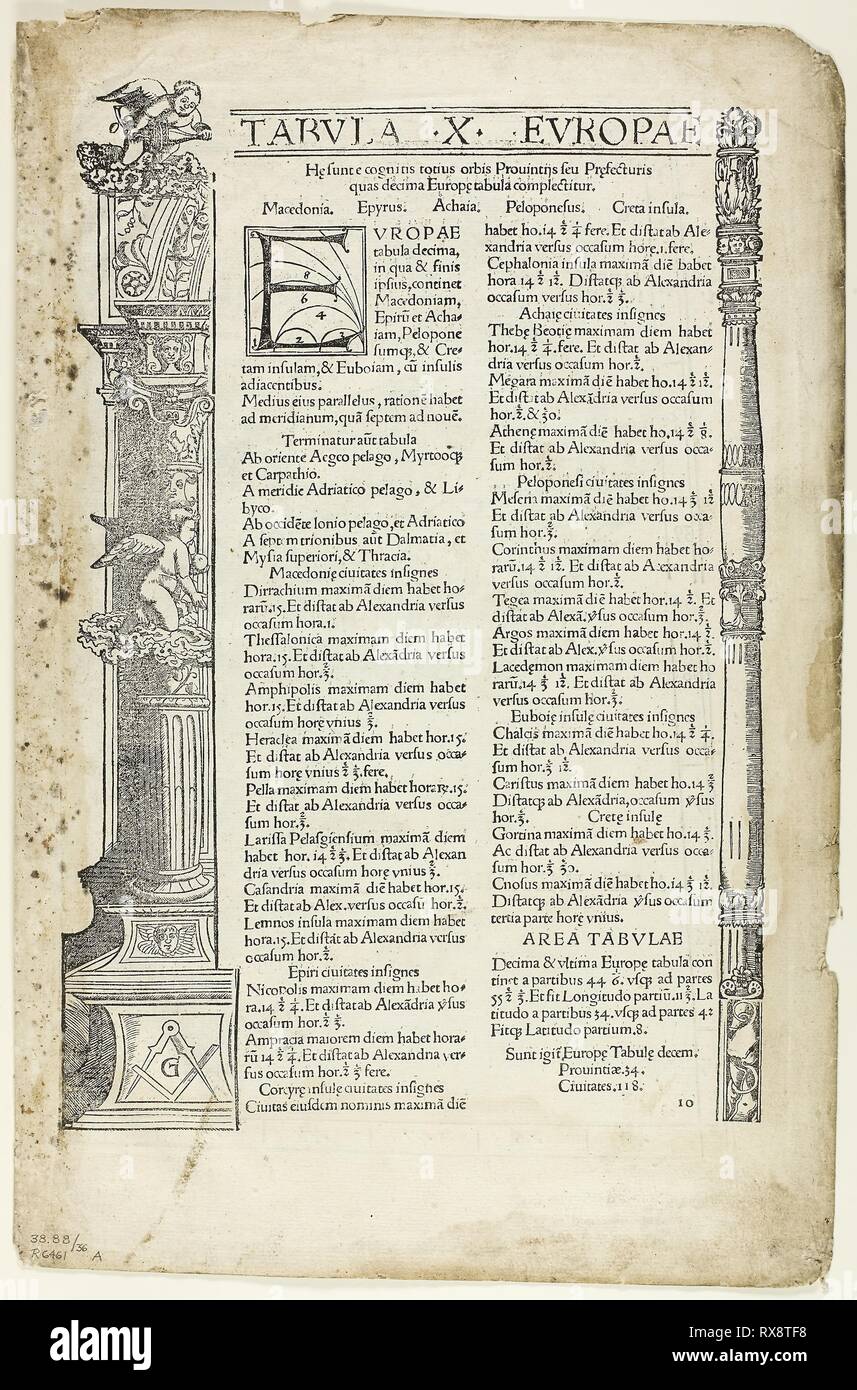 TABVLA ·X· EVROPAE
Hę sunt e cognitis totius orbis Prouintijs seu Pręfecturis
quas decima Europę tabula complectitur.
Macedonia. Epyrus. Achaia. Peloponesus. Creta insula.
EVROPAE
tabula decima,
in qua & finis
ipsius, continet
Macedoniam,
Epirū et Acha-
iam, Pelopone
sumq;, & Cre-
tam insulam, & Euboiam, cū insulis
adiacentibus.
Medius eius parallelus, rationē habet
ad meridianum, quā septem ad nouē.
Terminatur aūt tabula
Ab oriente Aegeo pelago, Myrtooq;
et Carpathio.
A meridie Adriatico pelago, & Li-
byco.
Ab occidēte Ionio pelago, et Adriatico
A septemtrionibus aūt Dalmatia, et
Mysia superiori, & Thracia.
Macedonię ciuitates insignes
Dirrachium maximā diem habet ho-
rarū.15. Et distat ab Alexandria versus
occasum hora.1.
Thessalonica maximam diem habet
hora.15. Et distat ab Alexādria versus
occasum hor.⅔.
Amphipolis maximam diem habet
hor.15. Et distat ab Alexandria versus
occasum horę vnius ⅔.
Heraclea maximā diem habet hor.15.
Et distat ab Alexandria versus occa-
sum horę vnius ½ ⅓. fere.
Pella maximam diem habet horarę.15.
Et distat ab Alexandria versus occa-
sum hor.⅔.
Larissa Pelasgiensium maximā diem
habet hor. 14 ½ ⅓. Et distat ab Alexan
dria versus occasum horę vnius ⅔.
Casandria maximā diē habet hor.15.
Et distat ab Alex. versus occasū hor.½.
Lemnos insula maximam diem habet
hora.15. Et distat ab Alexandria versus
occasum hor.½.
Epiri ciuitates insignes
Nicopolis maximam diem habet ho-
ra.14 ½ ¼. Et distat ab Alexādria ỽsus
occasum hor.½ ⅓.
Ampracia maiorem diem habet hora-
rū 14 ½ ¼. Et distat ab Alexandria ver-
sus occasum hor.½ ⅓ fere.
Corcyrę insulę ciuitates insignes
Ciuitas eiusdem nominis maximā diē
habet ho.14 ½ ¼ fere. Et distat ab Ale-
xandria versus occasum horę.1. fere.
Cephalonia insula maximā diē habet
hora 14 ½ 1/12. Distatq; ab Alexandria
occasum versus hor.½ ⅓.
Achaię ciuitates insignes
Thebę Beotię maximam diem habet
hor.14 ½ ¼. fere. Et distat ab Alexan-
dria versus occasum hor.½.
Megara maximā diē habet ho.14 ½ 1/12.
Et distat ab Alexādria versus occasum
hor.½. & 1/30.
Athenę maximā diē habet ho.14 ½ ⅛.
Et distat ab Alexandria versus occa-
sum hor.½.
Peloponesi ciuitates insignes
Mesena maximā diē habet ho.14 ⅓ 1/12
Et distat ab Alexādria versus occa-
sum hor.⅔.
Corinthus maximam diem habet ho-
rarū.14 ½ 1/12. Et distat ab Alexandria
versus occasum hor.½.
Tegea maximā diē habet hor.14 ½. Et
distat ab Alexā. ỽsus occasum hor.⅔.
Argos maximā diem habet hor.14 ½.
Et distat ab Alex. ỽsus occasum hor.½.
Lacedęmon maximam diem habet ho
rarū.14 ⅓ 1/12. Et distat ab Alexandria
versus occasum hor.⅔.
Euboię insulę ciuitates insignes
Chalcis maximā diē habet ho.14 ½ ¼.
Et distat ab Alexandria versus occa-
sum hor.⅓ 1/12.
Caristus maximā diem habet ho.14 ⅔
Distatq; ab Alexādria, occasum ỽsus
hor.⅔. Cretę insulę
Gortina maximā diem habet ho.14 ⅓.
Ac distat ab Alexandria versus occa-
sum hor.⅓ 1/30.
Cnosus maximā diē habet ho.14 ⅓ 1/12.
Distatq; ab Alexādria ỽsus occasum
tertia parte horę vnius.
AREA TABVLAE
Decima & vltima Europę tabula con
tinet a partibus 44 ⅙. vsq; ad partes
55 ½ ⅓. Et fit Longitudo partiū.11 ⅔. La
titudo a partibus 34. vsq; ad partes 42
Fitq; Latitudo partium.8.
Sunt igit̃ Europę Tabulę decem.
Prouintiæ.34.
Ciuitates.118.
10
8
6
4
2
G
38.88/36
R6461 A
alamy
Image ID: RX8TF8
www.alamy.com